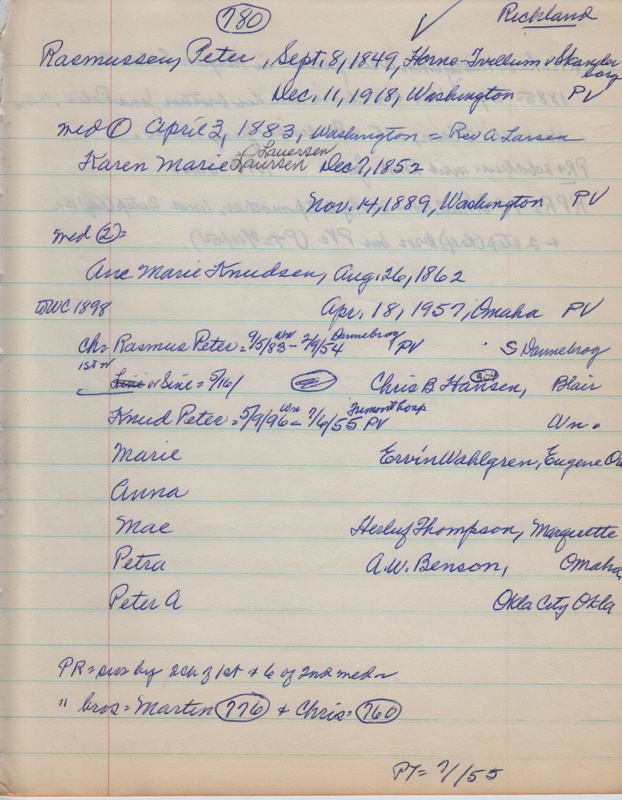 780
Richland
Rasmussen, Peter, Sept. 8, 1849, Horne-Tvillum v Skander
borg
Dec. 11, 1918, Washington PV
med ① April 3, 1883, Washington = Rev A Larsen
Lauersen
Karen Marie Laursen Dec 7, 1852
Nov. 14, 1889, Washington PV
med ②=
Ane Marie Knudsen, Aug. 26, 1862
WC 1898 Apr. 18, 1957, Omaha PV
Ch= Rasmus Peter = 9/5/83 Wn - 2/9/54 Dannebrog PV S Dannebrog
1st
or Sine = 5/16/ Chris B Hansen, Blair
Knud Peter = 5/9/96 Wn - 7/6/55 Fremont hosp PV Wn.
Marie Ervin Wahlgren, Eugene Ore
Anna
Mae Herluf Thompson, Marquette
Petra A.W. Benson, Omaha,
Peter A Okla City Okla
PR = surv by 2 ch of 1st + 6 of 2nd med
" bros = Martin 776 + Chris = 760
PT= 7/ /55